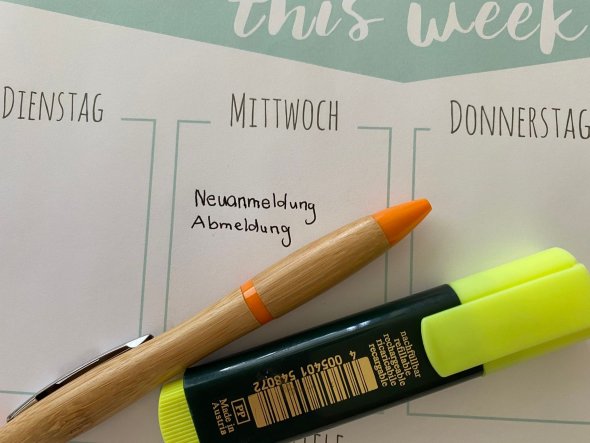 this week
DIENSTAG
MITTWOCH
DONNERSTAG
Neuanmeldung
Abmeldung
nachfüllbar
refillable
rechargeable
ricaricabile
recargable
4 005401 548072
PP
Made in
Austria